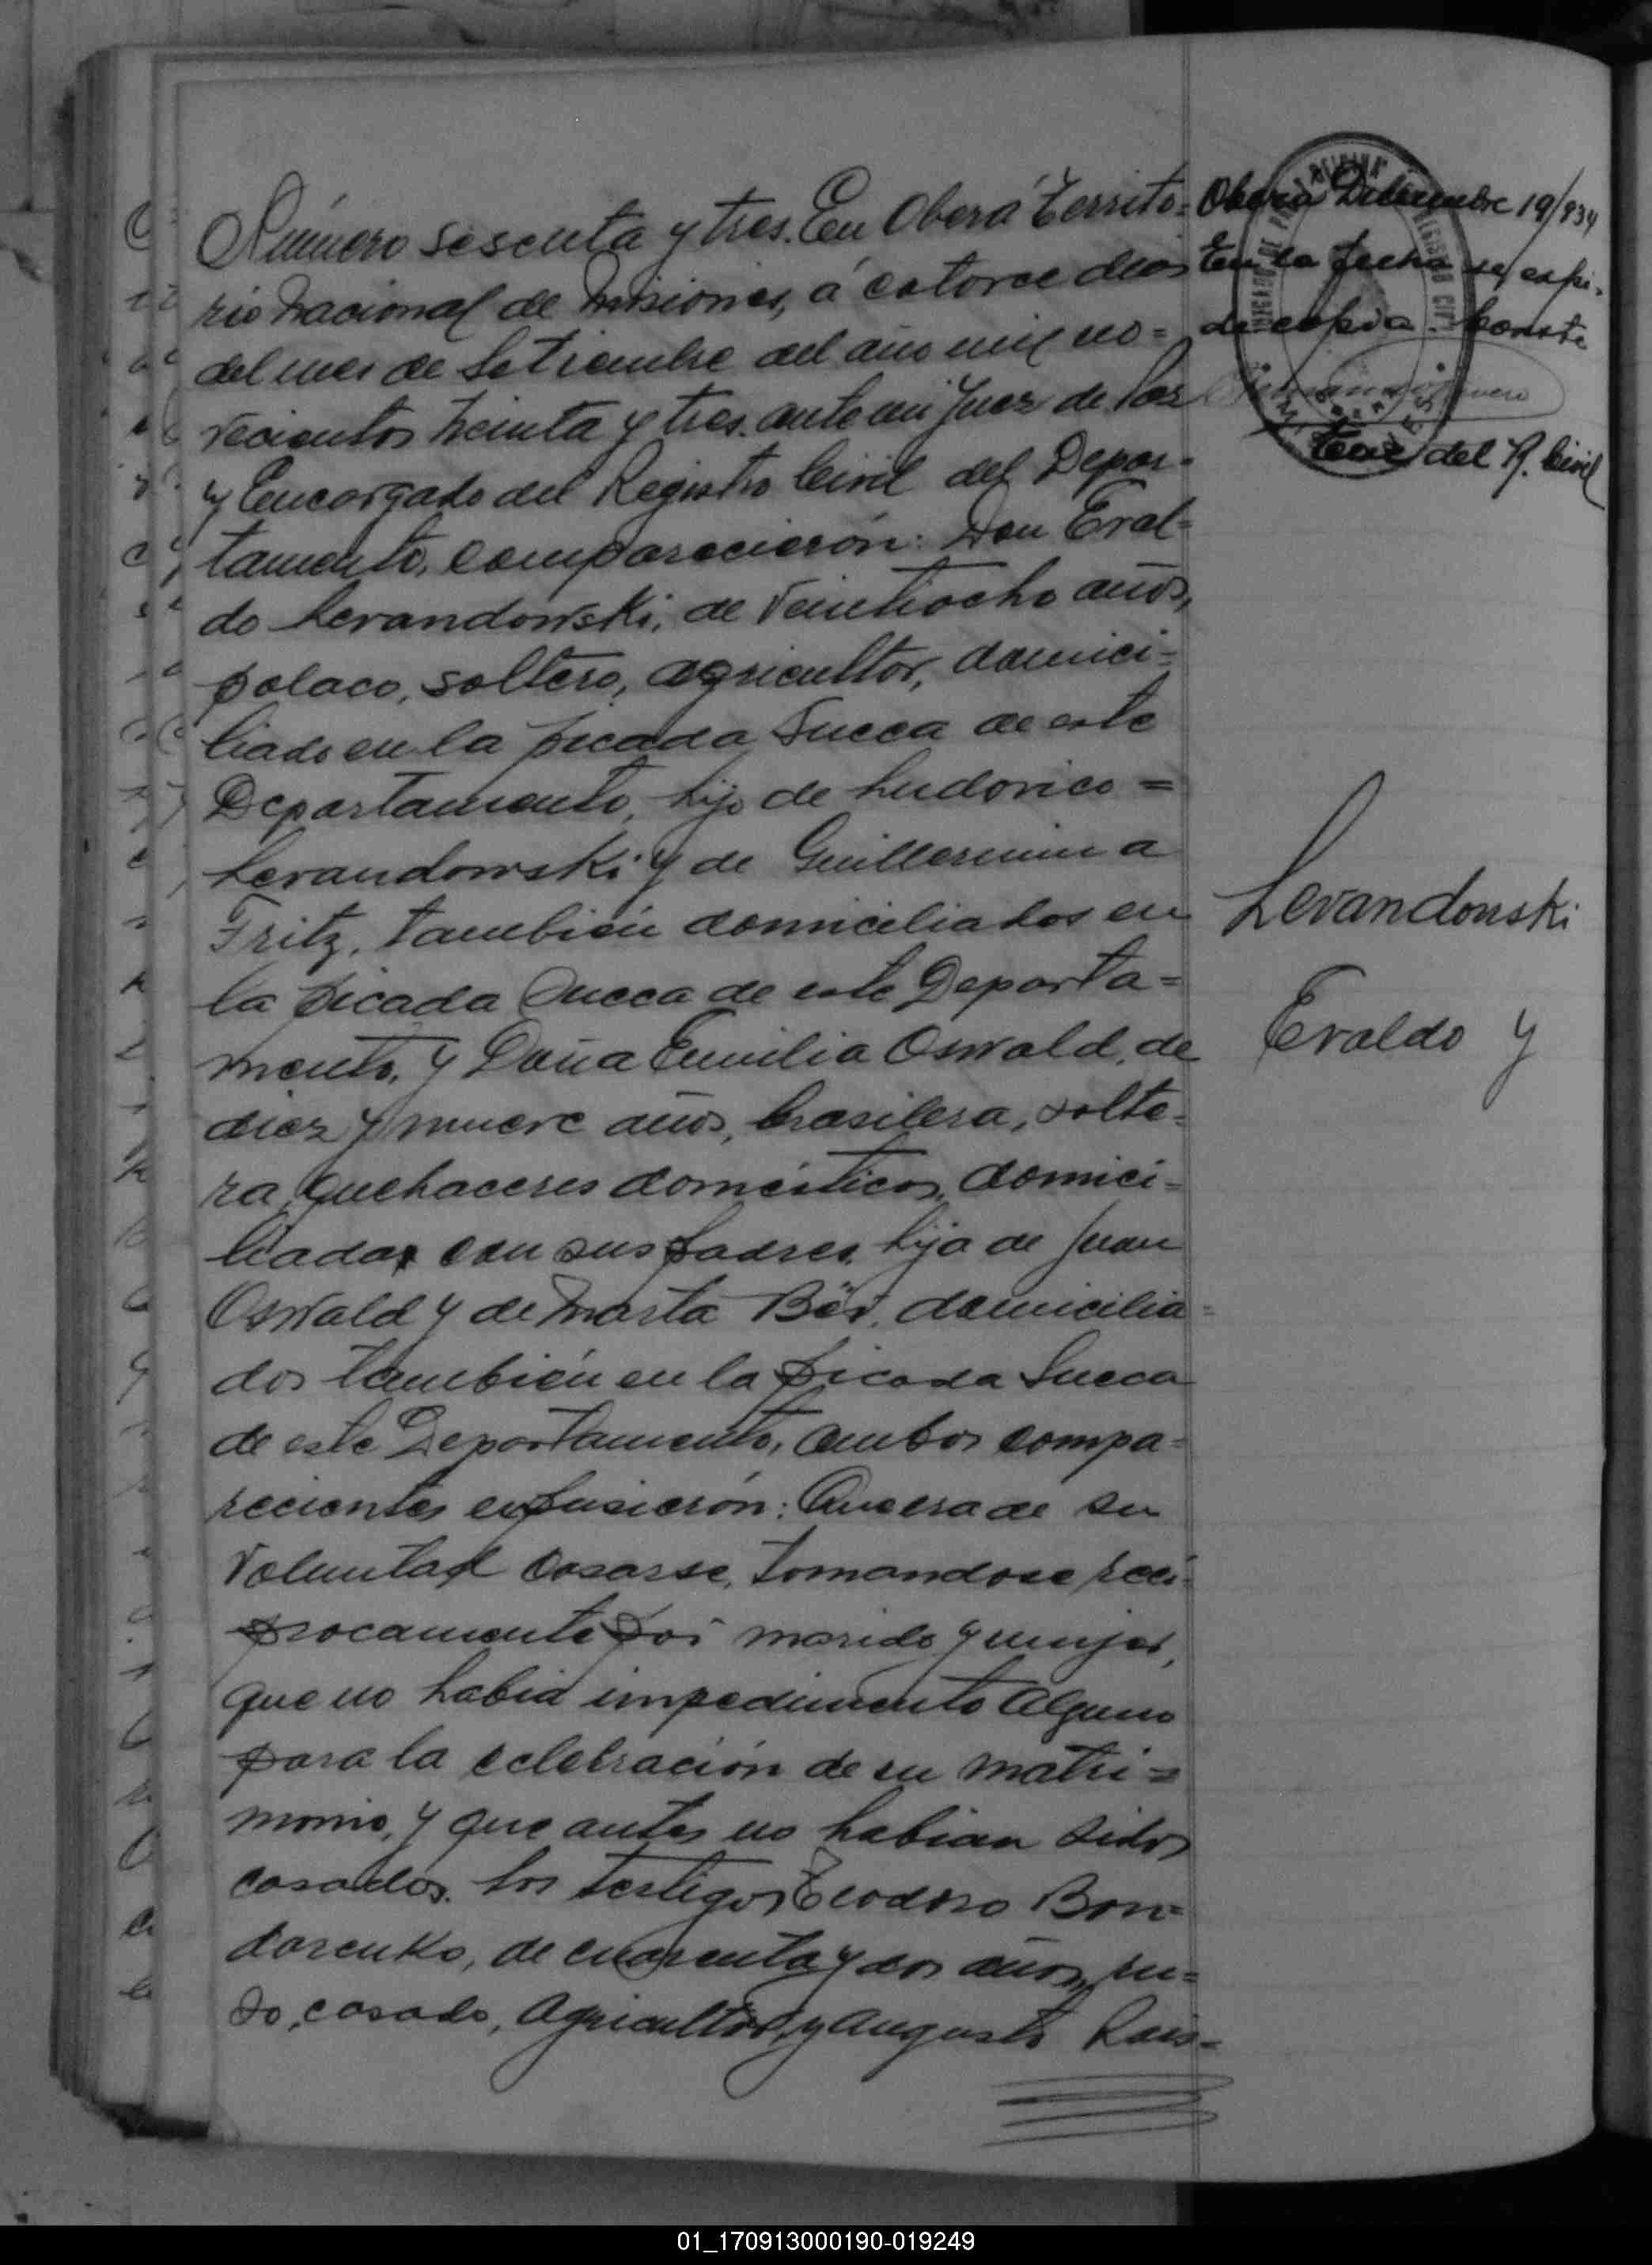 Número sesenta y tres. En Oberá Territo=
rio Nacional de Misiones, á catorce dias
del mes de Setiembre del año mil no=
vecientos treinta y tres. ante mi Juez de Paz
y Encargado del Registro Civil del Depar-
tamento, comparecierón: Don Eval=
do Levandowski, de veintiocho años,
polaco, soltero, agricultor, domici=
liado en la picada Sueca de este
Departamento, hijo de Ludovico =
Levandowski y de Guillermina
Fritz, también domiciliados en
la picada Sueca de este Departa=
mento, y Doña Emilia Oswald, de
diez y nueve años, brasilera, solte=
ra, quehaceres domésticos, domici=
liada con sus padres, hija de Juan
Oswald y de Marta Bër, domicilia=
dos también en la picada Sueca
de este Departamento, ambos compa=
recientes expusierón: Que era de su
voluntad casarse, tomandose reci=
procamente por marido y mujer,
que no habia impedimento alguno
para la celebración de su matri=
monio, y que antes no habian sidos
casados. Los testigos Teodoro Bon=
darenko, de cuarenta y dos años, ru=
so, casado, agricultor, y Augusto
Oberá Diciembre 19/934
En la fecha se expi-
de copia. Conste
del R. Civil
Levandonski
Evaldo y
01_170913000190-019249